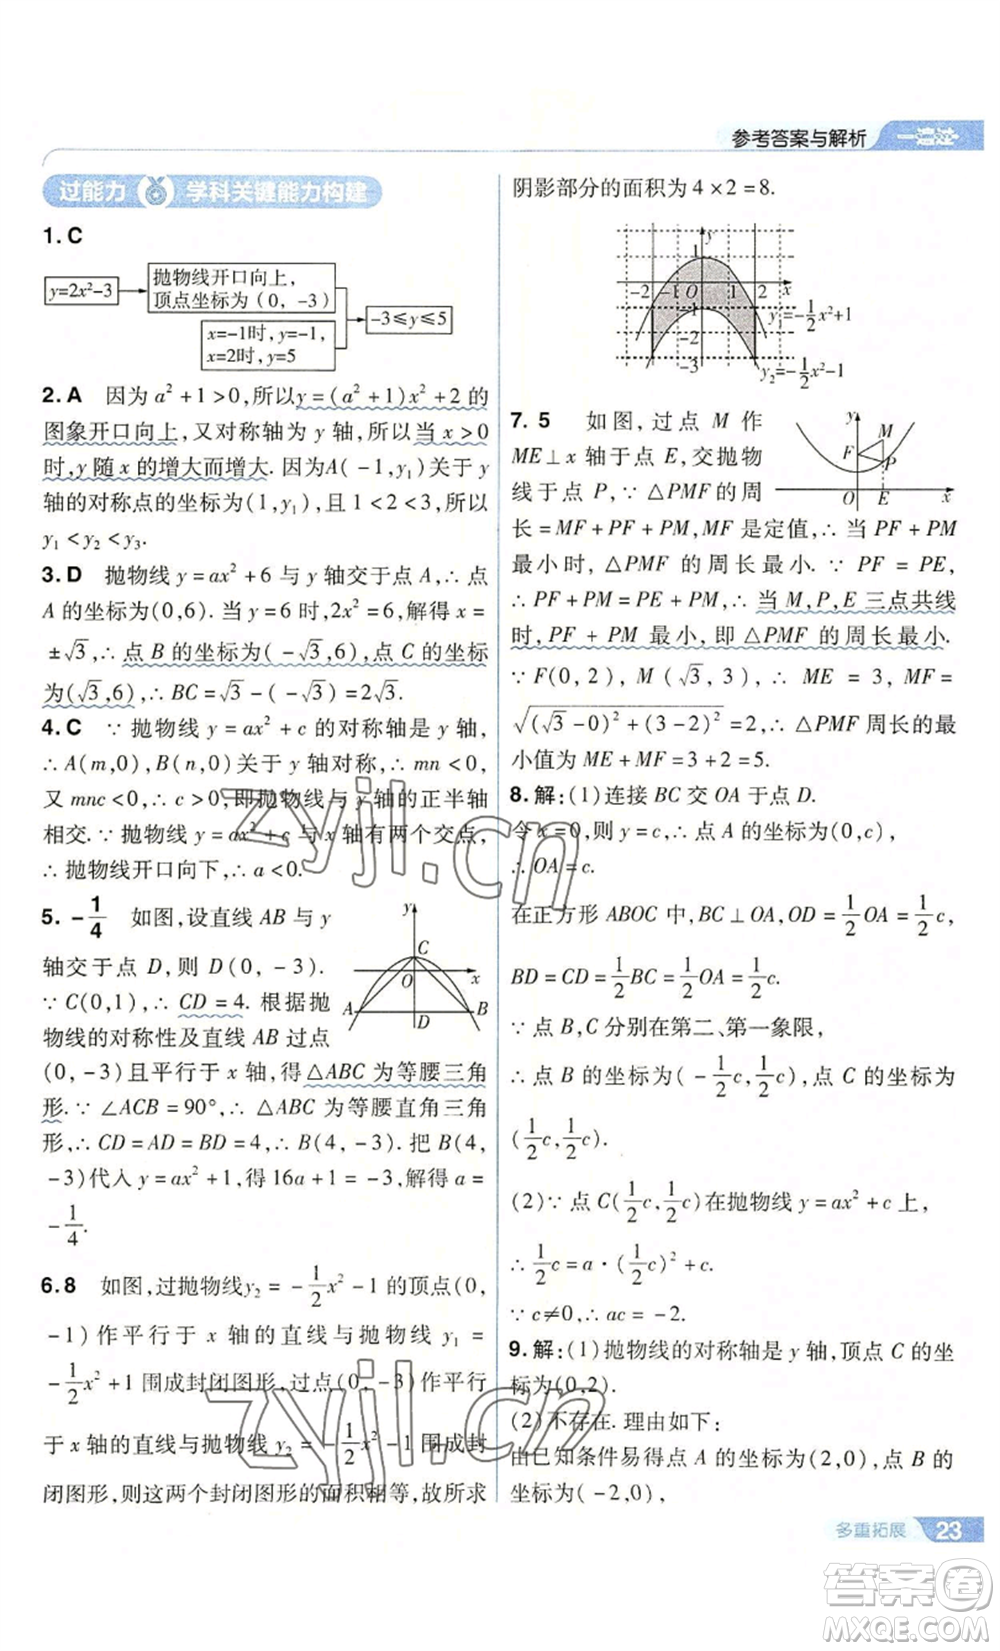 参考答案与解析 一遍过
过能力 学科关键能力构建
1. C
y=2x²-3
抛物线开口向上,
顶点坐标为(0, -3)
x=-1时,y=-1,
x=2时,y=5
-3≤y≤5
2. A 因为 a²+1>0,所以y=(a²+1)x²+2 的
图象开口向上,又对称轴为 y 轴,所以当 x>0
时,y 随 x 的增大而增大. 因为A(-1,y₁)关于 y
轴的对称点的坐标为(1,y₁),且 1<2<3,所以
y₁<y₂<y₃.
3. D 抛物线 y=ax²+6 与 y 轴交于点 A,∴ 点
A 的坐标为(0,6). 当 y=6 时,2x²=6,解得 x=
±√3,∴ 点 B 的坐标为(-√3,6),点 C 的坐标为
(√3,6),∴ BC=√3-(-√3)=2√3.
4. C ∵ 抛物线 y=ax²+c 的对称轴是 y 轴,
∴ A(m,0),B(n,0)关于 y 轴对称,∴ mn<0,
又 mnc<0,∴ c>0,即抛物线与 y 轴的正半轴
相交. ∵ 抛物线 y=ax²+c 与 x 轴有两个交点,
∴ 抛物线开口向下,∴ a<0.
5. -1/4 如图,设直线 AB 与 y
轴交于点 D,则 D(0, -3).
∵ C(0,1),∴ CD=4. 根据抛
物线的对称性及直线 AB 过点
y
C
O
x
A
D
B
(0,-3)且平行于 x 轴,得△ABC 为等腰三角
形.∵ ∠ACB=90°,∴ △ABC 为等腰直角三角
形,∴ CD=AD=BD=4,∴ B(4, -3). 把 B(4,
-3)代入 y=ax²+1,得 16a+1=-3,解得 a=
-1/4.
6. 8 如图,过抛物线y₂=-1/2x²-1 的顶点(0,
-1)作平行于 x 轴的直线与抛物线 y₁=
-1/2x²+1 围成封闭图形,过点(0,-3)作平行
于 x 轴的直线与抛物线 y₂=-1/2x²-1 围成封
闭图形,则这两个封闭图形的面积相等,故所求
阴影部分的面积为 4×2=8.
y
1
-2 -1 O 1 2 x
-1
-2
-3
y₁=-1/2x²+1
y₂=-1/2x²-1
7. 5 如图,过点 M 作
ME⊥x 轴于点 E,交抛物
线于点 P,∵ △PMF 的周
y
F
M
P
O
E
x
长=MF+PF+PM,MF 是定值,∴ 当 PF+PM
最小时,△PMF 的周长最小. ∵ PF=PE,
∴ PF+PM=PE+PM,∴ 当 M,P,E 三点共线
时,PF+PM 最小,即△PMF 的周长最小.
∵ F(0,2),M(√3,3),∴ ME=3,MF=
√((√3-0)²+(3-2)²)=2,∴ △PMF 周长的最
小值为 ME+MF=3+2=5.
8. 解:(1)连接 BC 交 OA 于点 D.
令 x=0,则 y=c,∴ 点 A 的坐标为(0,c),
∴ OA=c.
在正方形 ABOC 中,BC⊥OA,OD=1/2OA=1/2c,
BD=CD=1/2BC=1/2OA=1/2c.
∵ 点 B,C 分别在第二、第一象限,
∴ 点 B 的坐标为(-1/2c,1/2c),点 C 的坐标为
(1/2c,1/2c).
(2)∵ 点 C(1/2c,1/2c)在抛物线 y=ax²+c 上,
∴ 1/2c=a·(1/2c)²+c.
∵ c≠0,∴ ac=-2.
9. 解:(1)抛物线的对称轴是 y 轴,顶点 C 的坐
标为(0,2).
(2)不存在. 理由如下:
由已知条件易得点 A 的坐标为(2,0),点 B 的
坐标为(-2,0),
多重拓展 23
zyjl.cn
zyjl.cn
答案圈
MXQE.COM